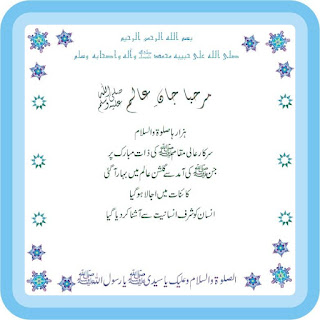 بسم الله الرحمن الرحيم
صلى الله على حبيبه محمد ﷺ وآله وأصحابه وسلم
مرحبا جانِ عالم ﷺ
ہزار ہا صلوٰۃ والسلام
سرکار عالی مقام ﷺ کی ذات مبارک پر
جن ﷺ کی آمد سے گلشن عالم میں بہار آ گئی
کائنات میں اجالا ہو گیا
انسان کو شرف انسانیت سے آشنا کر دیا گیا
الصلوٰۃ والسلام وعلیک یا سیدی ﷺ یا رسول اللہ ﷺ